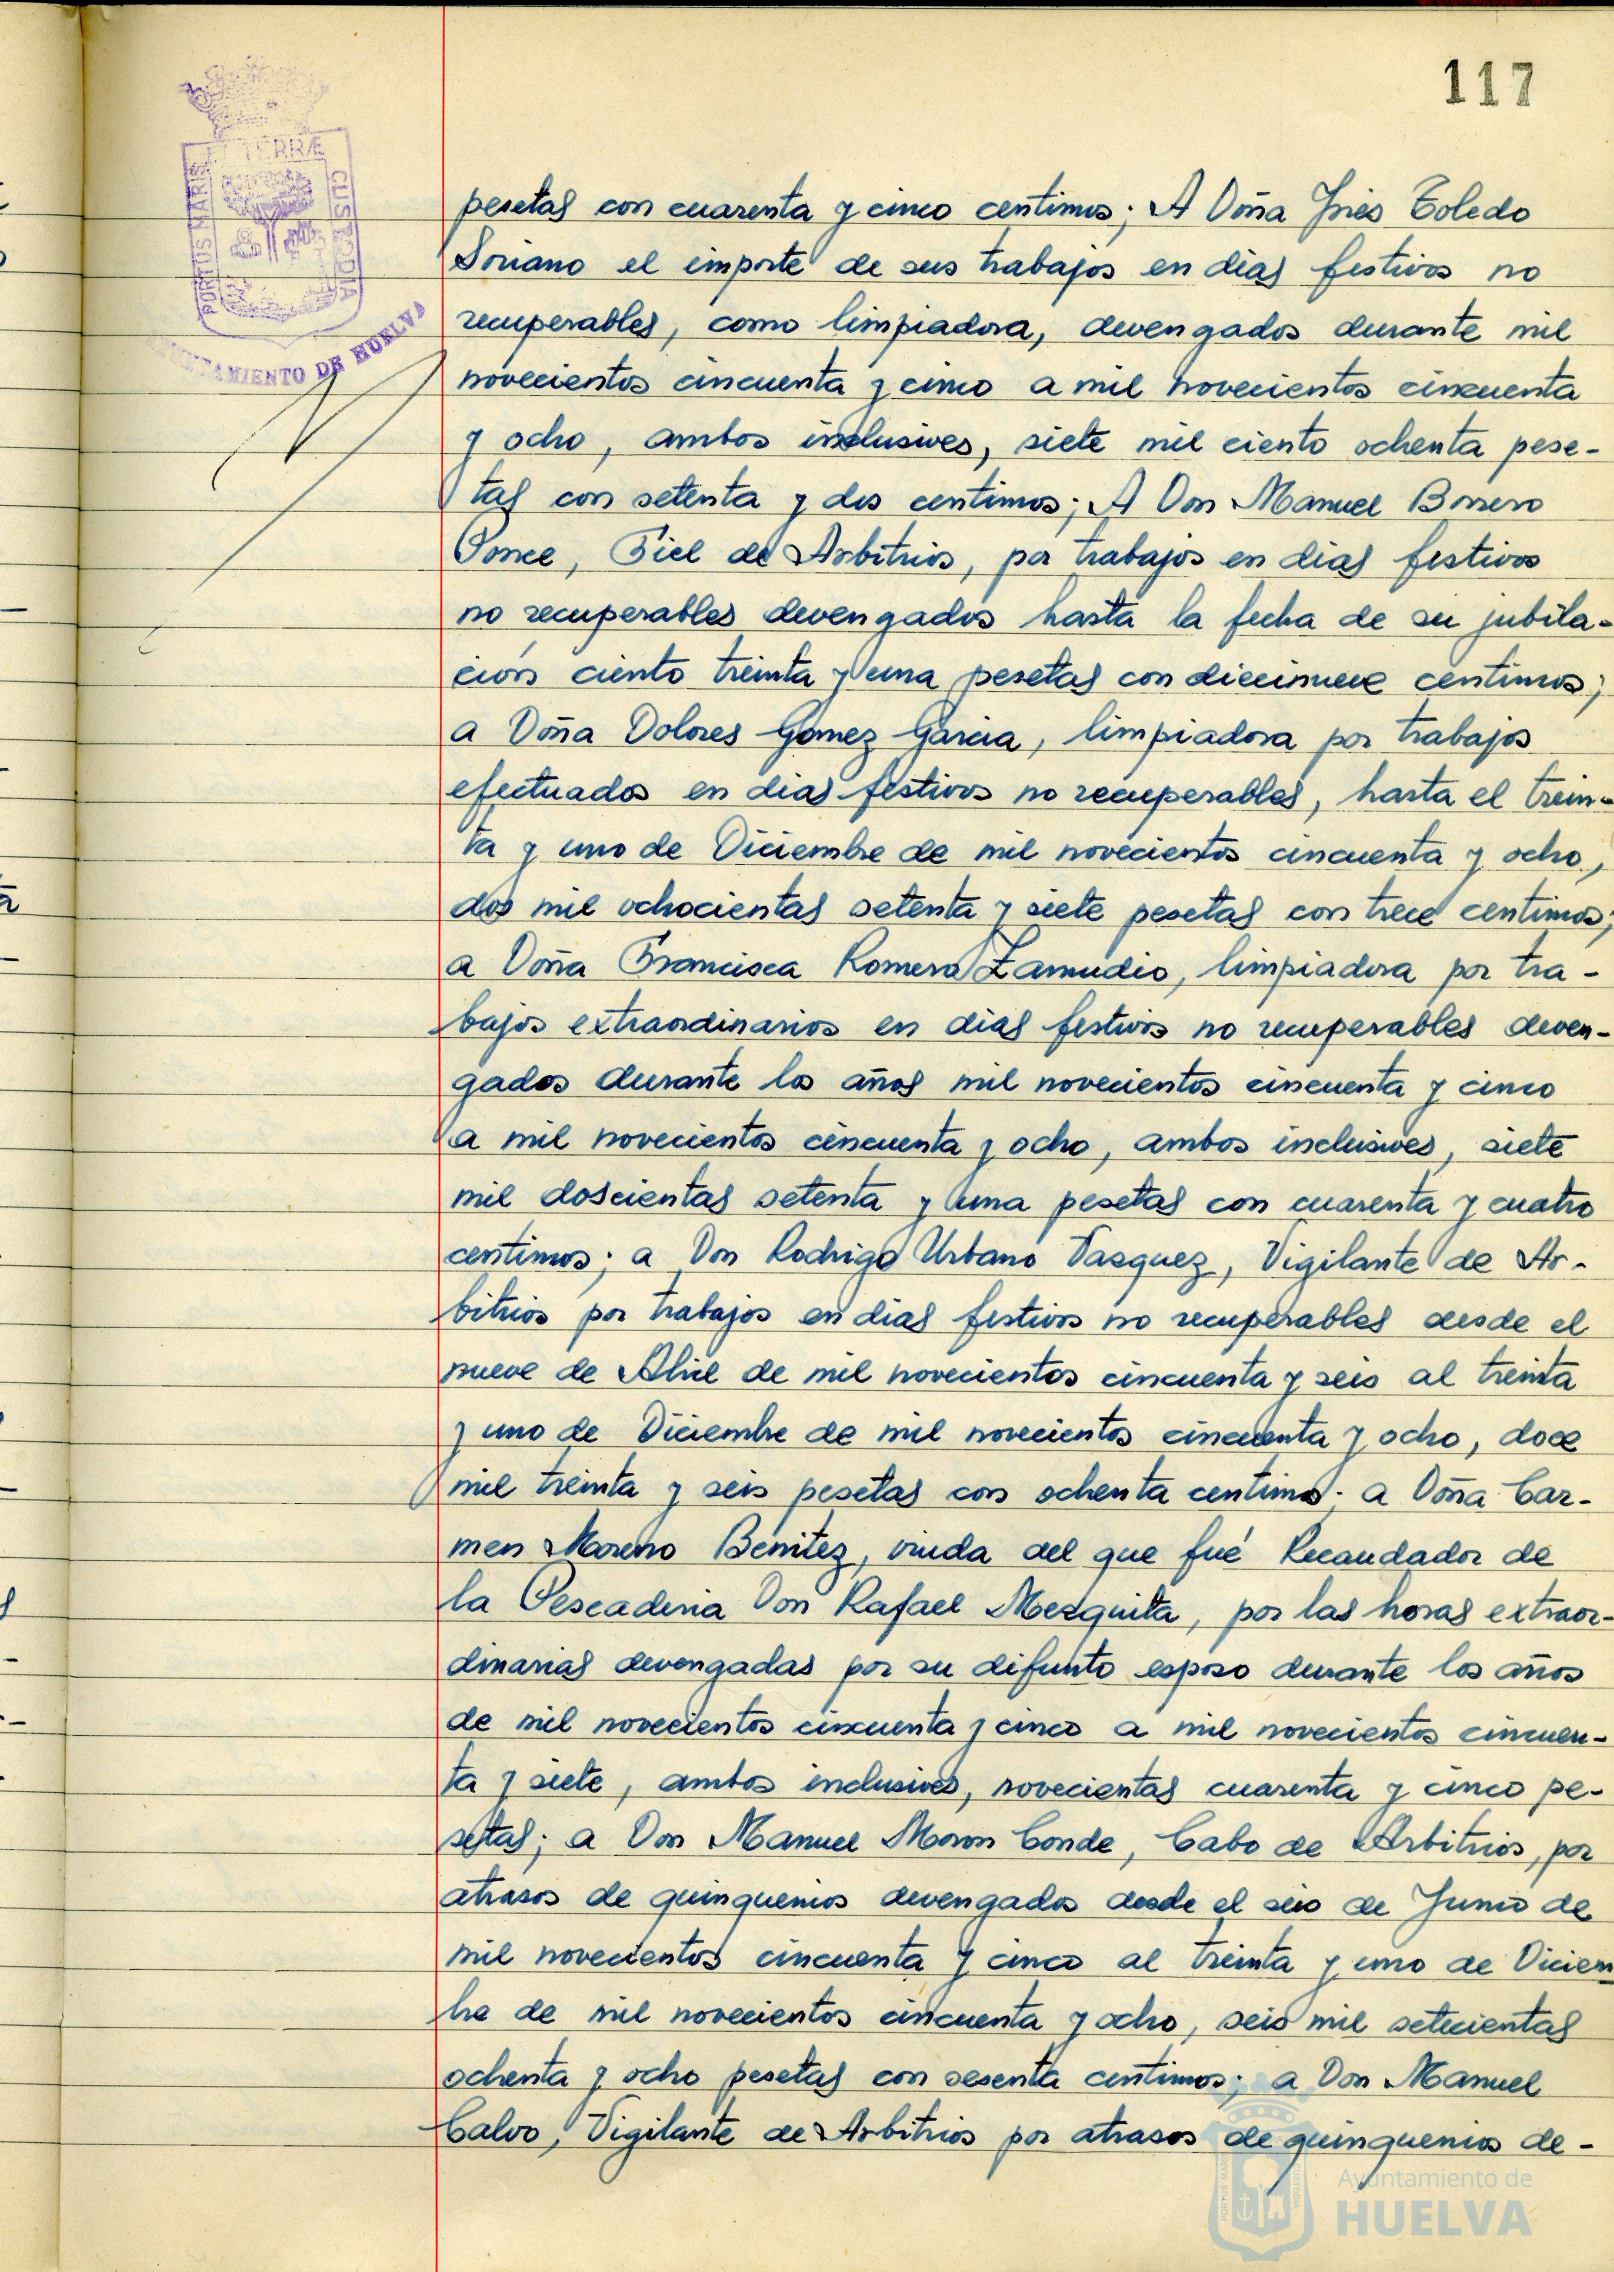 117
PORTUS MARIS ET TERRÆ CUSTODIA
AYUNTAMIENTO DE HUELVA
pesetas con cuarenta y cinco centimos; A Doña Ines Toledo
Soriano el importe de sus trabajos en dias festivos no
recuperables, como limpiadora, devengados durante mil
novecientos cincuenta y cinco a mil novecientos cincuenta
y ocho, ambos inclusives, siete mil ciento ochenta pese-
tas con setenta y dos centimos; A Don Manuel Borrero
Ponce, Fiel de Arbitrios, por trabajos en dias festivos
no recuperables devengados hasta la fecha de su jubila-
ción ciento treinta y una pesetas con diecinueve centimos;
a Doña Dolores Gomez Garcia, limpiadora por trabajos
efectuados en dias festivos no recuperables, hasta el trein-
ta y uno de Diciembre de mil novecientos cincuenta y ocho,
dos mil ochocientas setenta y siete pesetas con trece centimos;
a Doña Francisca Romero Zamudio, limpiadora por tra-
bajos extraordinarios en dias festivos no recuperables deven-
gados durante los años mil novecientos cincuenta y cinco
a mil novecientos cincuenta y ocho, ambos inclusives, siete
mil doscientas setenta y una pesetas con cuarenta y cuatro
centimos; a Don Rodrigo Urbano Vazquez, Vigilante de Ar-
bitrios por trabajos en dias festivos no recuperables desde el
nueve de Abril de mil novecientos cincuenta y seis al treinta
y uno de Diciembre de mil novecientos cincuenta y ocho, doce
mil treinta y seis pesetas con ochenta centimos; a Doña Car-
men Moreno Benitez, viuda del que fué Recaudador de
la Pescaderia Don Rafael Mezquita, por las horas extraor-
dinarias devengadas por su difunto esposo durante los años
de mil novecientos cincuenta y cinco a mil novecientos cincuen-
ta y siete, ambos inclusives, novecientas cuarenta y cinco pe-
setas; a Don Manuel Moron Conde, Cabo de Arbitrios, por
atrasos de quinquenios devengados desde el seis de Junio de
mil novecientos cincuenta y cinco al treinta y uno de Diciem
bre de mil novecientos cincuenta y ocho, seis mil setecientas
ochenta y ocho pesetas con sesenta centimos; a Don Manuel
Calvo, Vigilante de Arbitrios por atrasos de quinquenios de-
Ayuntamiento de
HUELVA